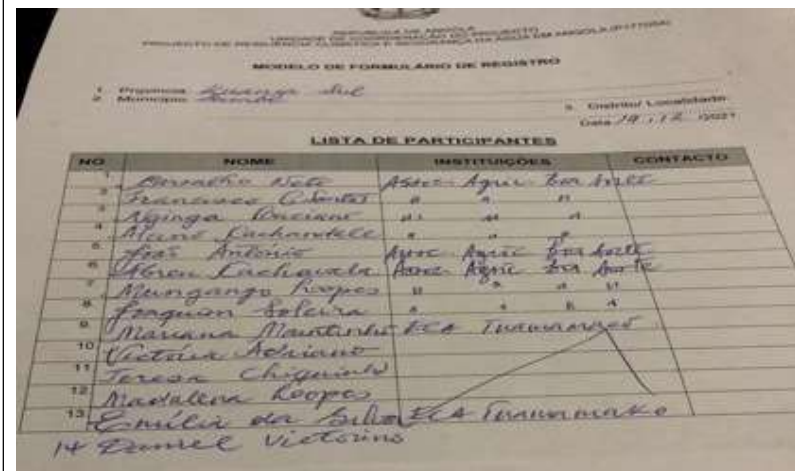 REPÚBLICA DE ANGOLA
UNIDADE DE COORDENAÇÃO DO PROJECTO
PROJECTO DE RESILIÊNCIA CLIMÁTICA E SEGURANÇA DA ÁGUA EM ANGOLA
MODELO DE FORMULÁRIO DE REGISTRO
1. Província Kuanza Sul
2. Município
3. Distrito/ Localidade
Data 14 / 12 /2021
LISTA DE PARTICIPANTES
NO NOME INSTITUIÇÕES CONTACTO
1 Carvalho Neto Assoc. Agric. Boa Sorte
2 Francisco Santos " " "
3 Nginga " " "
4 Kachandele " " "
5 João António Assoc Agric Boa Sorte
6 Abreu Kachavela Assoc Agric Boa Sorte
7 Mungango Loopes " " " "
8 Joaquim " " " "
9 Mariana ECA
10 Victória Adriano
11 Teresa
12 Madalena Loopes
13 Emília da Silva ECA
14 Daniel Victorino